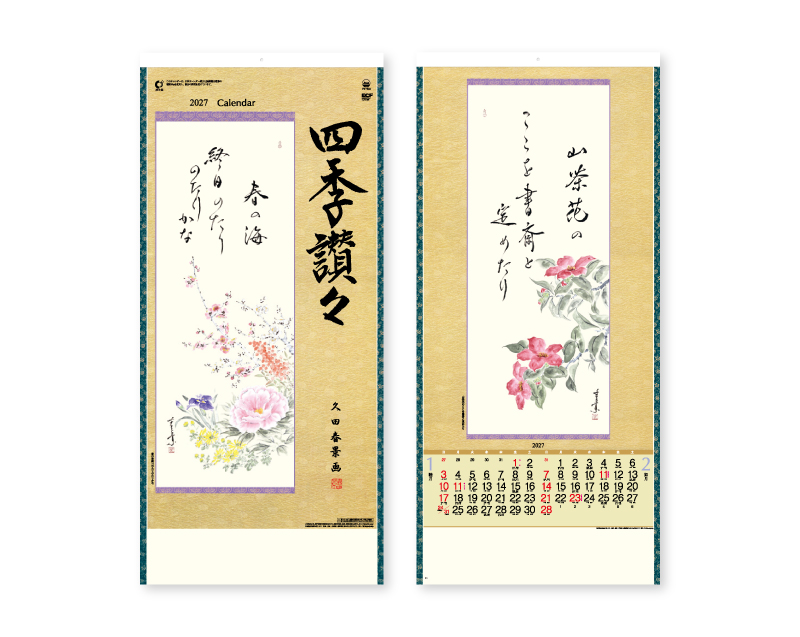 2027 Calendar
四季讃々
春の海
終日のたり
のたりかな
久田春景画
山茶花の
こゝを書斎と
定めたり
2027
1
2
27 28 29 30 31 1 2
3 4 5 6 7 8 9
10 11 12 13 14 15 16
17 18 19 20 21 22 23
24 31 25 26 27 28 29 30
31 1 2 3 4 5 6
7 8 9 10 11 12 13
14 15 16 17 18 19 20
21 22 23 24 25 26 27
28 1 2 3 4 5 6